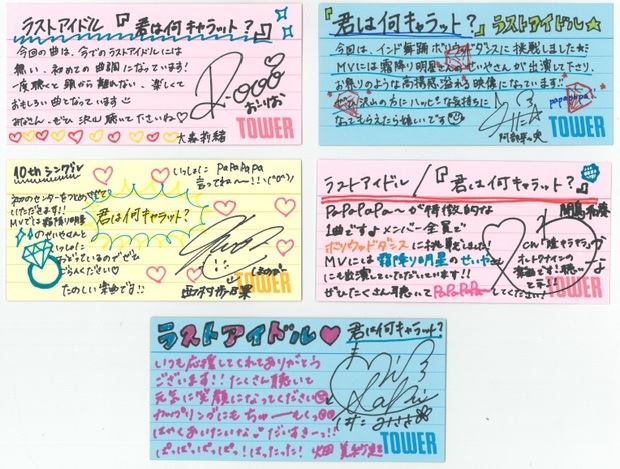 ラストアイドル『君は何キャラット？』
今回の曲は、今までのラストアイドルには
無い、初めての曲調になっています！
一度聴くと頭から離れない、楽しくて
おもしろい曲となっています
みなさん、ぜひ沢山聴いて下さいね♡
大森莉緒
TOWER
『君は何キャラット？』ラストアイドル★
今回は、インド舞踊ボリウッドダンスに挑戦しました★
MVには霜降り明星さんのせいやさんが出演して下さり、
お祭りのような高揚感溢れる映像になっています!!
沢山の方にハッピーな気持ちに
なってもらえたら嬉しいです
papapapa!
阿部菜々実
TOWER
10thシングル
いっしょに PaPaPaPa
言ってね〜!!
初のセンターをつとめさせて
いただきます!!
MVでは霜降り明星
のせいやさんと
いっしょに
おどっているのでぜひ
ごらんください♡
たのしい楽曲です!!
君は何キャラット？
西村歩乃果
TOWER
ラストアイドル/『君は何キャラット？』
PaPaPaPa〜が特徴的な
1曲です♪メンバー全員で
ボリウッドダンスに挑戦しました！
MVには霜降り明星のせいやさん
にも出演していただいています!!
ぜひたくさん聴いてPaPaPaPa〜してください！
間島和奏
TOWER
ラストアイドル♥ 君は何キャラット？
いつも応援してくれてありがとう
ございます!!たくさん聴いて
元気に笑顔になってください
カップリングにもちゅーもくっ
はやくあいたいな♡だいすきーっ!!
ぱっぱっぱっぱっ！
はたみさき
TOWER